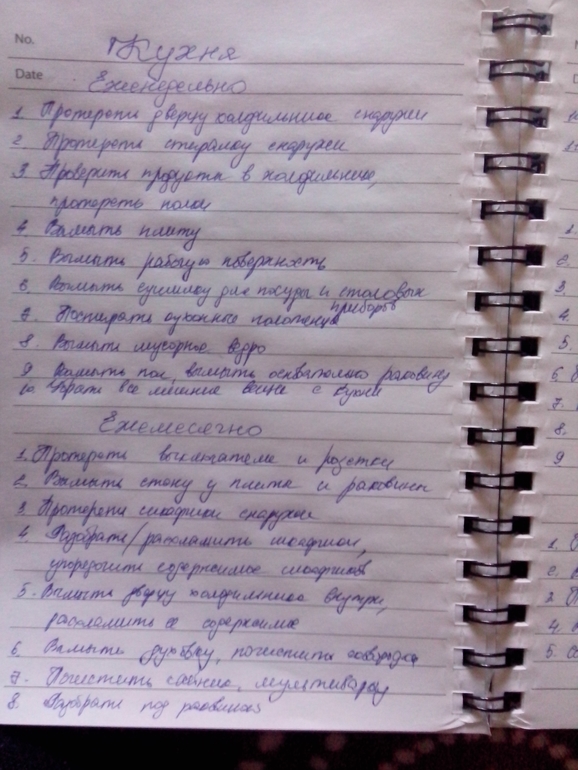 No.
Кухня
Date Еженедельно
1. Протереть дверцу холодильника снаружи
2. Протереть стиралку снаружи
3. Проверить продукты в холодильнике,
протереть полки
4. Вымыть плиту
5. Вымыть рабочую поверхность
6. Вымыть сушилку для посуды и столовых
приборов
7. Постирать кухонные полотенца
8. Вымыть мусорное ведро
9. Вымыть пол, вымыть раковину
10. Убрать все лишние вещи с кухни
Ежемесячно
1. Протереть выключатели и розетки
2. Вымыть стену у плиты и раковины
3. Протереть шкафчики снаружи
4. Разобрать/расхламить шкафчики,
упорядочить содержимое шкафчиков
5. Вымыть дверцу холодильника внутри,
расхламить ее содержимое
6. Вымыть духовку, почистить
7. Почистить чайник, мультиварку
8. Разобрать под раковиной